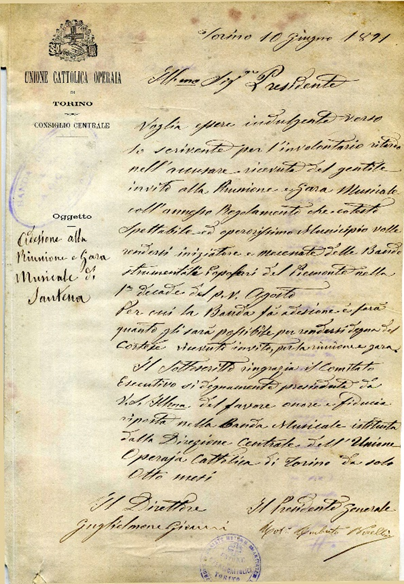 Torino 10 Giugno 1891
UNIONE CATTOLICA OPERAIA
DI
TORINO
CONSIGLIO CENTRALE
Ill.mo Sig.r Presidente
Voglia essere indulgente verso
lo scrivente per l'involontario ritardo
nell'accusare ricevuta del gentile
invito alla Riunione e Gara Musicale
coll'annesso Regolamento che cotesto
Spettabile ed operosissimo Municipio volle
rendersi iniziatore e mecenate delle Bande
strumentali Popolari del Piemonte nella
1a decade del p.v. Agosto
Per cui la Banda fa adesione e farà
quanto gli sarà possibile per rendersi degna del
Cortese ricevuto invito, per la riunione e gara.
Oggetto
Adesione alla
Riunione e Gara
Musicale di
Santena
Il Sottoscritto ringrazia il Comitato
Esecutivo si degnamente presieduto da
V.S. Ill.ma del favore onore e fiducia
riposta nella Banda Musicale istituita
dalla Direzione Centrale dell'Unione
Operaja Cattolica di Torino da solo
Otto mesi
Il Direttore
Guglielmone
Il Presidente Generale